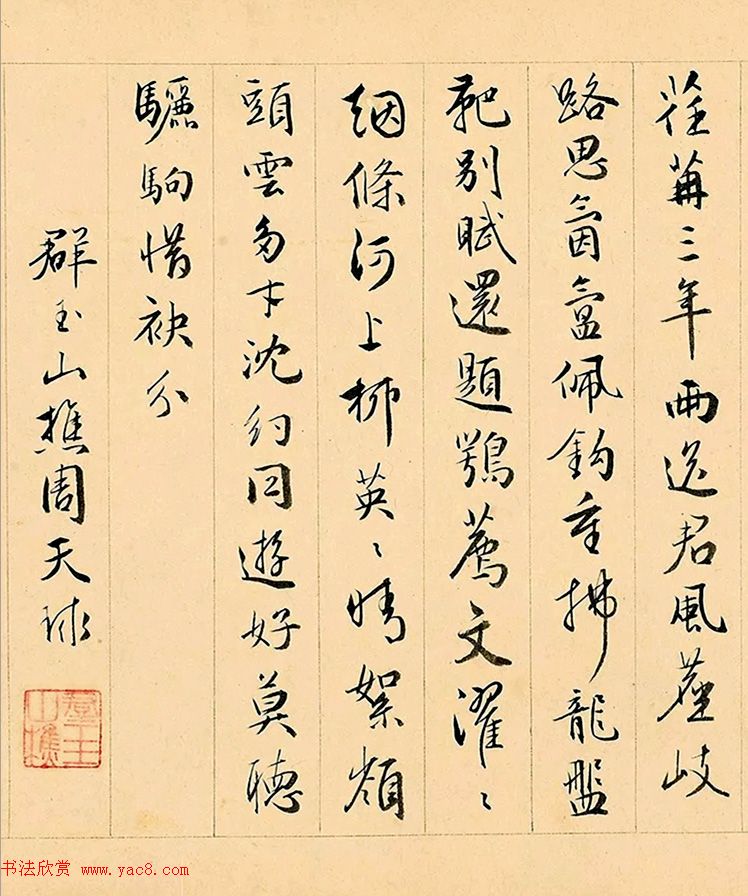 荏苒三年兩送君風塵岐
路思氤氳佩鈎重拂龍盤
靶別賦還題鶚薦文濯〻
烟條河上柳英〻晴絮嶺
頭雲多才沈約同遊好莫聽
驪駒惜袂分
群玉山樵周天球
群玉山樵
书法欣赏 www.yac8.com